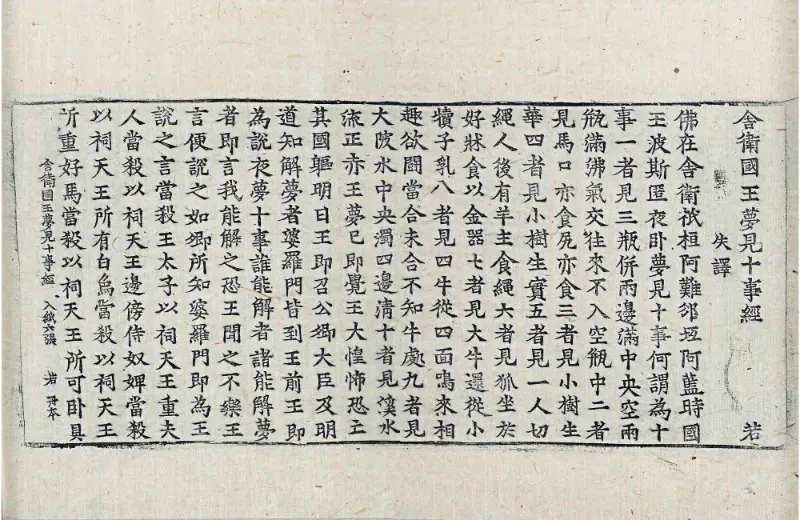 舍衛國王夢見十事經 若
失譯
佛在舍衛祇桓阿難邠坻阿藍時國
王波斯匿夜卧夢見十事何謂為十
事一者見三瓶併兩邊滿中央空兩
瓶滿沸氣交往來不入空瓶中二者
見馬口亦食尻亦食三者見小樹生
華四者見小樹生實五者見一人切
繩人後有羊主食繩六者見狐坐於
好牀食以金器七者見大牛還從小
犢子乳八者見四牛從四面鳴來相
趣欲鬬當合未合不知牛處九者見
大陂水中央濁四邊清十者見溪水
流正赤王夢已即覺王大惶怖恐亡
其國軀明日王即召公卿大臣及明
道知解夢者婆羅門皆到王前王即
為說夜夢十事誰能解者諸能解夢
者即言我能解之恐王聞之不樂王
言便說之如卿所知婆羅門即為王
說之言當殺王太子以祠天王重夫
人當殺以祠天王邊傍侍奴婢當殺
以祠天王所有白象當殺以祠天王
所重好馬當殺以祠天王所可卧具
舍衛國王夢見十事經 入紙六張 若